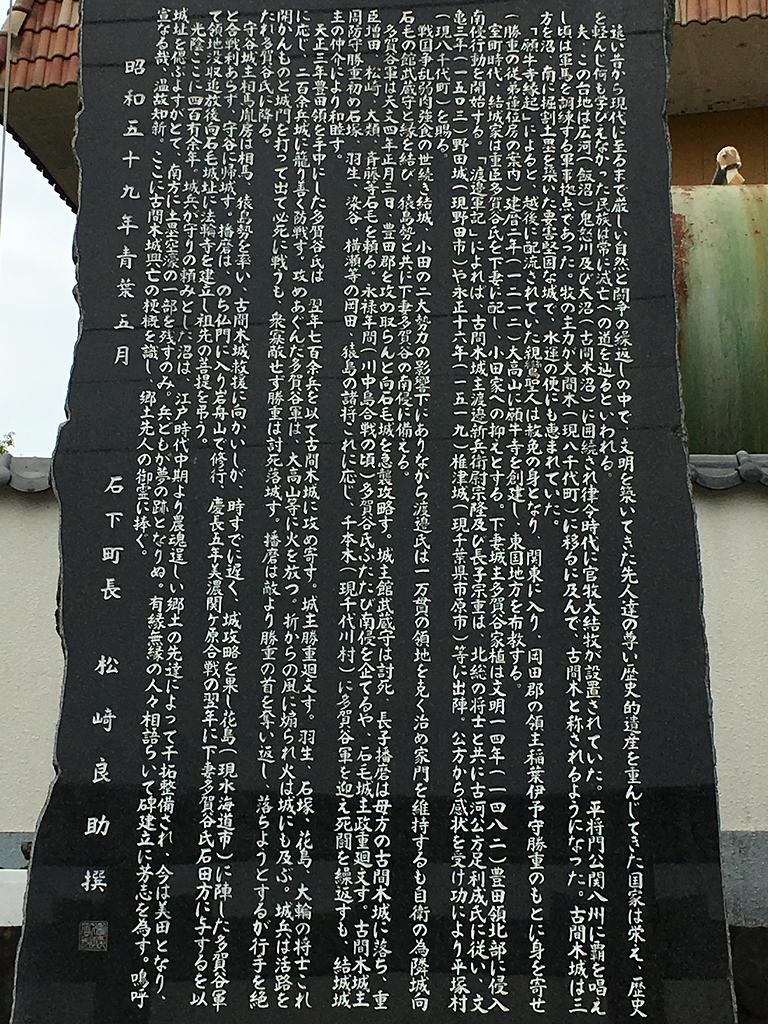 遠い昔から現代に至るまで厳しい自然と闘争の繰返しの中で、文明を築いてきた先人達の尊い歴史的遺産を重んじてきた国家は栄え、歴史
を軽んじ何も学びえなかった民族は常に滅亡への道を辿るといわれる。
夫、この台地は広河(飯沼)鬼怒川及び大沼(古間木沼)に囲続され律令時代に官牧大結牧が設置されていた。平将門公関八州に覇を唱え
し頃は軍馬を調練する軍事拠点であった。牧の主力が大間木(現八千代町)に移るに及んで、古間木と称されるようになった。古間木城は三
方を沼、南に掘割土塁を築いた要害堅固な城で、水運の便にも恵まれていた。
「願牛寺縁起」によると、越後に配流されていた親鸞聖人は赦免の身となり、関東に入り、岡田郡の領主稲葉伊予守勝重のもとに身を寄せ
(勝重の従弟蓮位房の案内)建暦二年(一二一二)大高山に願牛寺を創建し、東国地方を布教する。
室町時代、結城家は重臣多賀谷氏を下妻に配し、小田家への抑えとする。下妻城主多賀谷家植は文明一四年(一四八二)豊田領北部に侵入
南侵行動を開始する。「渡邉軍記」によれば、古間木城主渡邉新兵衛尉宗隆及び長子宗重は、北総の将士と共に古河公方足利成氏に従い、文
亀三年(一五〇三)野田城(現野田市)や永正十六年(一五一九)椎津城(現千葉県市原市)等に出陣。公方から感状を受け功により平塚村
(現八千代町)を賜る。
戦国争乱弱肉強食の世続き結城、小田の二大勢力の影響下にありながら渡邉氏は一万貫の領地を克く治め家門を維持するも自衛の為隣城向
石毛の館武蔵守と縁を結び、猿島勢と共に下妻多賀谷の南侵に備える。
多賀谷軍は天文四年正月三日、豊田郡を攻め取らんと向石毛城を急襲攻略す。城主館武蔵守は討死、長子播磨は母方の古間木城に落ち、重
臣増田、松崎、大類、斉藤等石毛を頼る。永禄年間(川中島合戦の頃)多賀谷氏ふたたび南侵を企てるや、石毛城主政重廻文す。古間木城主
周防守勝重初め石塚、羽生、染谷、横瀬等の岡田、猿島の諸将これに応じ、千本木(現千代川村)に多賀谷軍を迎え死闘を繰返すも、結城城
主の仲介により和睦す。
天正三年豊田領を手中にした多賀谷氏は、翌年七百余兵を以て古間木城に攻め寄す。城主勝重廻文す。羽生、石塚、花島、大輪の将士これ
に応じ、二百余兵城に籠り善く防戦す。攻めあぐんだ多賀谷軍は、大高山等に火を放つ。折からの風に煽られ火は城にも及ぶ。城兵は活路を
開かんものと城門を打って出て必死に戦うも、衆寡敵せず勝重は討死落城す。播磨は敵より勝重の首を奪い返し、落ちようとするが行手を絶
たれ多賀谷氏に降る。
守谷城主相馬胤房は相馬、猿島勢を率い、古間木城救援に向かいしが、時すでに遅く、城攻略を果し花島(現水海道市)に陣した多賀谷軍
と合戦利あらず、守谷に帰城す。播磨は、のち仏門に入り岩舟山で修行、慶長五年美濃関ヶ原合戦の翌年に下妻多賀谷氏石田方に与するを以
て領地没収追放後向石毛城址に法輪寺を建立し祖先の菩提を弔う。
光陰ここに四百有余年。城兵が守りの頼みとした沼は、江戸時代中期より農魂逞しい郷土の先達によって干拓整備され、今は美田となり、
城址を偲ぶよすがとて、南方に土塁空濠の一部を残すのみ。兵どもが夢の跡となりぬ。有縁無縁の人々相語らいて碑建立に芳志を為す。嗚呼
宣なる哉、温故知新。ここに古間木城興亡の梗概を識し、郷土先人の御霊に捧ぐ。
昭和五十九年青葉五月
石下町長 松崎良助 撰